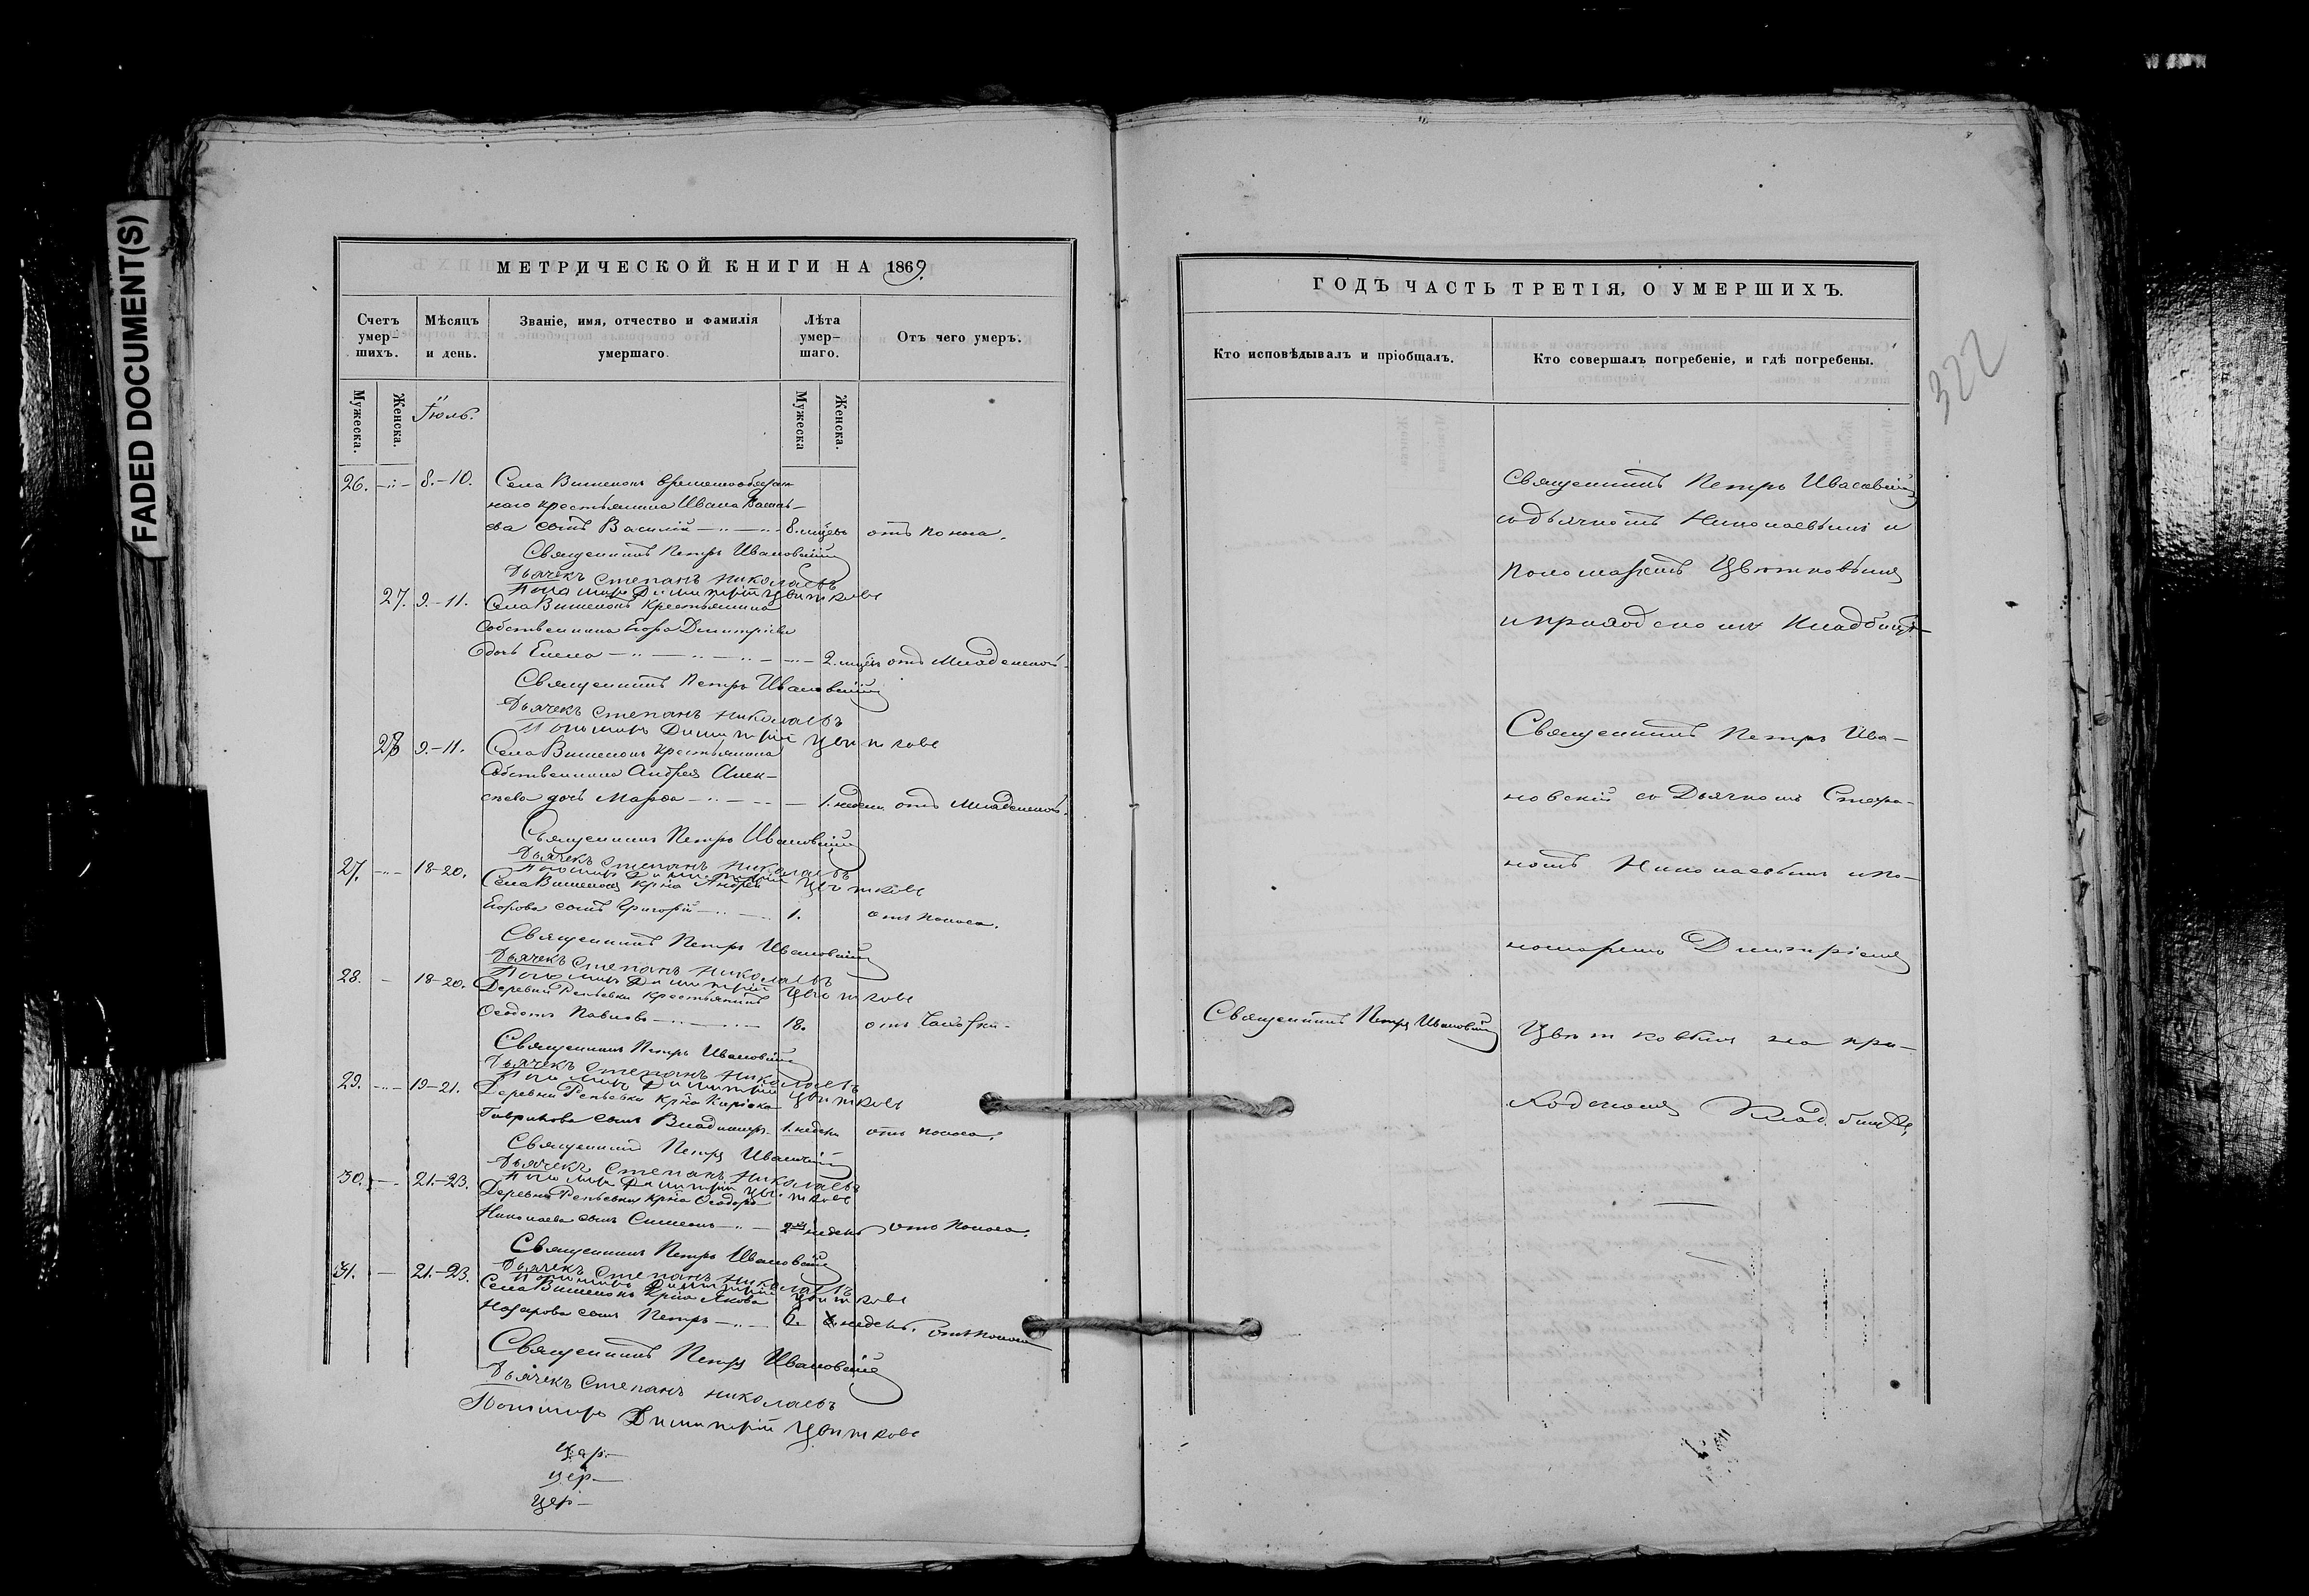 FADED DOCUMENT(S)
МЕТРИЧЕСКОЙ КНИГИ НА 1869.
Счетъ умер-шихъ.
Мѣсяцъ и день.
Званіе, имя, отчество и фамилія умершаго.
Лѣта умер-шаго.
Отъ чего умеръ.
Мужеска.
Женска.
Іюль.
Мужеска
Женска.
26. 8.-10. Села Вишенокъ временнообязан-
наго крестьянина Ивана
сынъ Василій 8. мцевъ отъ поноса.
Священникъ Петръ Ивановскій
Дьячекъ Степанъ Николаевъ
Пономарь Димитрій Цвѣтковъ
27. 9.-11. Села Вишенокъ Крестьянина
Собственника Егора Димитріева
дочь Елена 2. мцевъ отъ Младенческой
Священникъ Петръ Ивановскій
Дьячекъ Степанъ Николаевъ
Пономарь Димитрій Цвѣтковъ
28 9.-11. Села Вишенокъ Крестьянина
Собственника Андрея Алек-
сѣева дочь Марѳа 1. недели отъ Младенческой.
Священникъ Петръ Ивановскій
Дьячекъ Степанъ Николаевъ
Пономарь Димитрій Цвѣтковъ
27. 18-20. Села Вишенокъ Крна Андрея
Егорова сынъ Григорій 1. отъ поноса.
Священникъ Петръ Ивановскій
Дьячекъ Степанъ Николаевъ
Пономарь Димитрій Цвѣтковъ
28. 18-20. Деревни Репьевки Крестьянинъ
Ѳеодотъ Павловъ 18. отъ
Священникъ Петръ Ивановскій
Дьячекъ Степанъ Николаевъ
Пономарь Димитрій Цвѣтковъ
29. 19-21. Деревни Репьевки Крна
Гаврилова сынъ Владимиръ 1. недели отъ поноса.
Священникъ Петръ Ивановскій
Дьячекъ Степанъ Николаевъ
Пономарь Димитрій Цвѣтковъ
30. 21.-23. Деревни Репьевки Крна Ѳеодора
Николаева сынъ Симеонъ недель отъ поноса.
Священникъ Петръ Ивановскій
Дьячекъ Степанъ Николаевъ
Пономарь Димитрій Цвѣтковъ
31. 21.-23. Села Вишенокъ Крна Якова
Назарова сынъ Петръ 6. недель. отъ поноса
Священникъ Петръ Ивановскій
Дьячекъ Степанъ Николаевъ
Пономарь Димитрій Цвѣтковъ
ГОДЪ ЧАСТЬ ТРЕТІЯ, О УМЕРШИХЪ.
Кто исповѣдывалъ и пріобщалъ.
Кто совершалъ погребеніе, и гдѣ погребены.
322
Священникъ Петръ Ивановскій
съ дьячкомъ Николаевымъ и
пономаремъ Цвѣтковымъ
на приходскомъ Кладбищѣ
Священникъ Петръ Ива-
новскій съ Дьячкомъ Степа-
номъ Николаевымъ и по-
номаремъ Димитріемъ
Священникъ Петръ Ивановскій
Цвѣтковымъ на при-
ходскомъ Кладбищѣ,